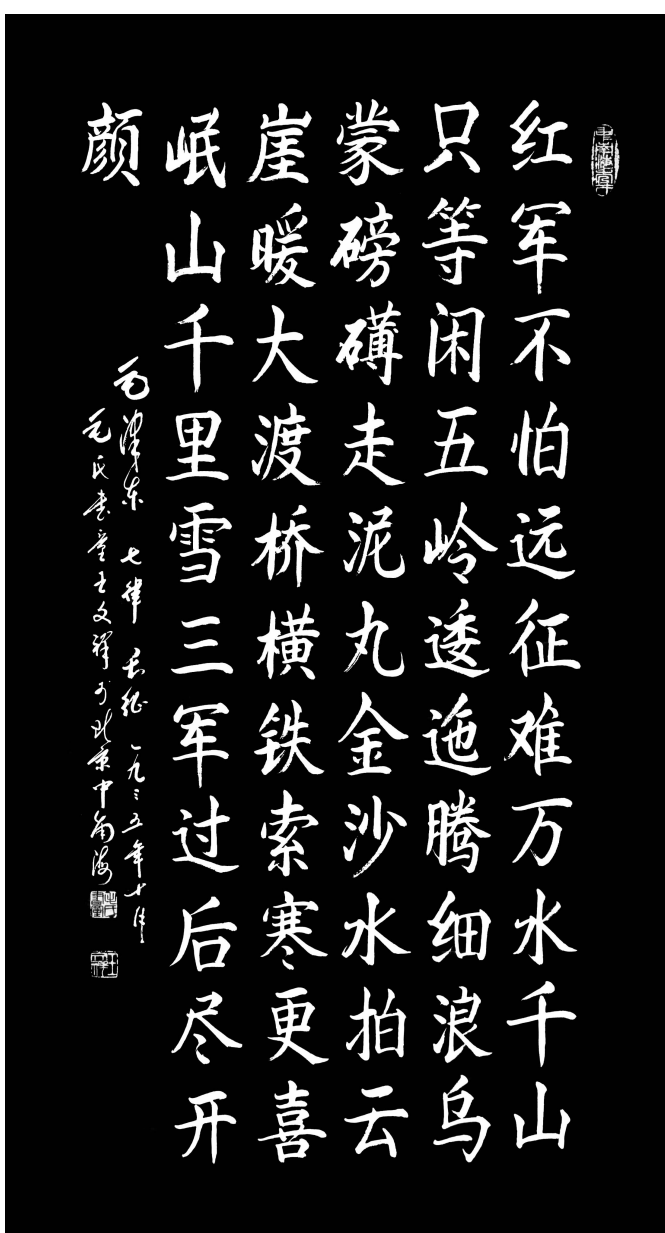 红军不怕远征难万水千山
只等闲五岭逶迤腾细浪乌
蒙磅礴走泥丸金沙水拍云
崖暖大渡桥横铁索寒更喜
岷山千里雪三军过后尽开
颜
毛泽东 七律 长征 一九三五年十月
毛氏书童王文祥于北京中南海